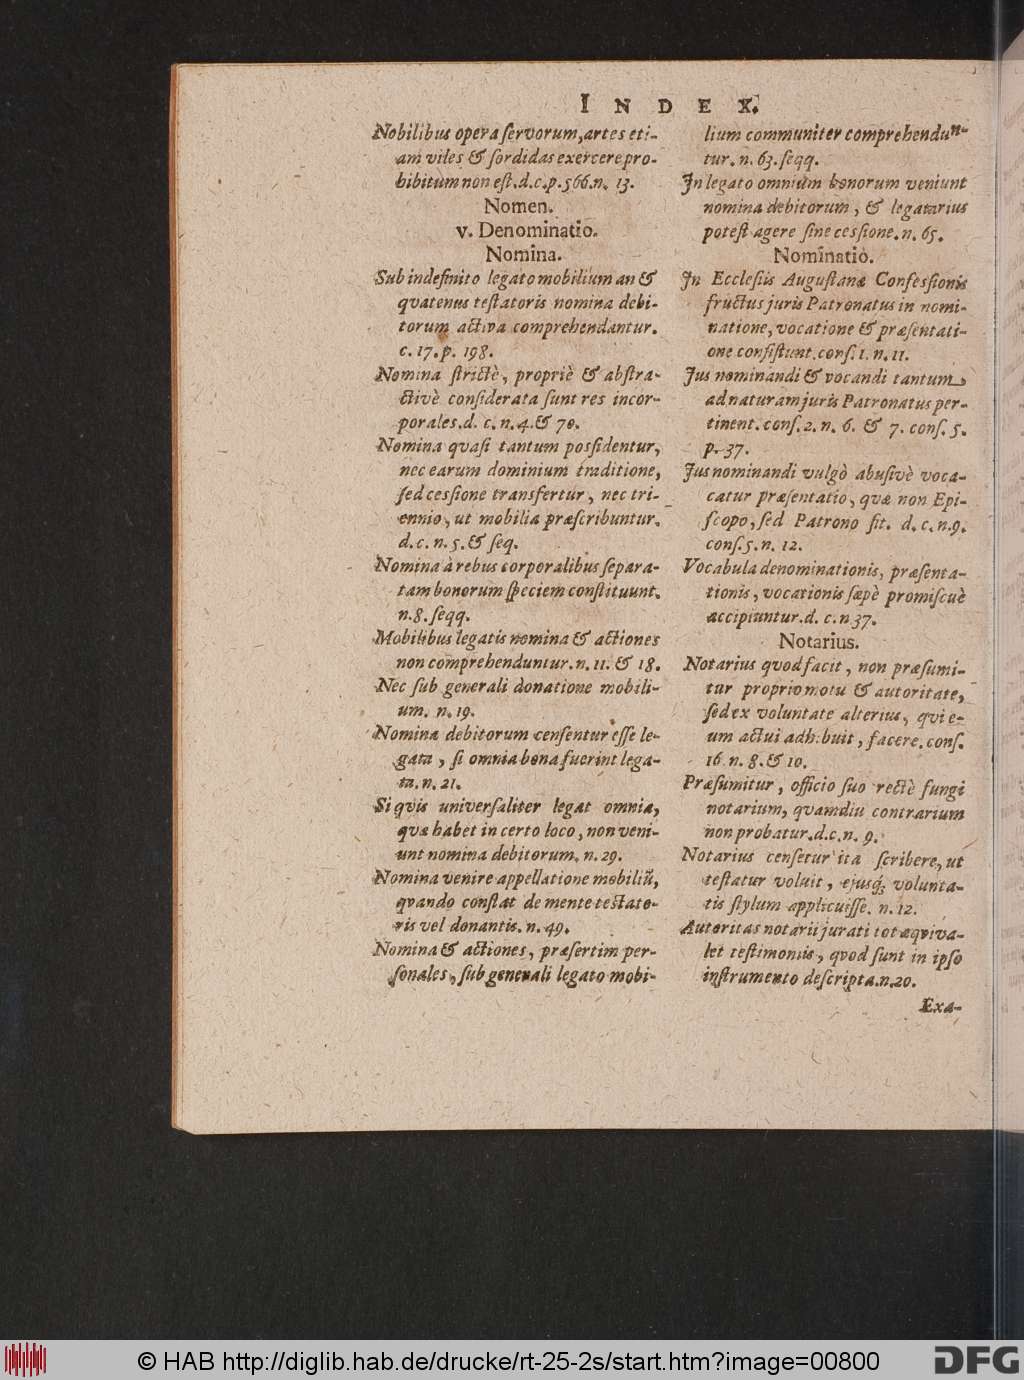 INDEX.
Nobilibus opera ſervorum, artes eti-
am viles & ſordidas exercere pro-
hibitum non eſt. d. c. p. 566. n. 13.
Nomen.
v. Denominatio.
Nomina.
Sub indefinito legato mobilium an &
qvatenus teſtatoris nomina debi-
torum activa comprehendantur.
c. 17. p. 198.
Nomina ſtrictè, propriè & abſtra-
ctivè conſiderata ſunt res incor-
porales. d. c. n. 4. & 70.
Nomina qvaſi tantum poſſidentur,
nec earum dominium traditione,
ſed ceſſione transfertur, nec tri-
ennio, ut mobilia præſcribuntur.
d. c. n. 5. & ſeq.
Nomina à rebus corporalibus ſepara-
tam bonorum ſpeciem conſtituunt.
n. 8. ſeqq.
Mobilibus legatis nomina & actiones
non comprehenduntur. n. 11. & 18.
Nec ſub generali donatione mobili-
um. n. 19.
Nomina debitorum cenſentur eſſe le-
gata, ſi omnia bona fuerint lega-
ta. n. 21.
Si qvis univerſaliter legat omnia,
qvæ habet in certo loco, non veni-
unt nomina debitorum. n. 29.
Nomina venire appellatione mobiliũ,
qvando conſtat de mente teſtato-
ris vel donantis. n. 49.
Nomina & actiones, præſertim per-
ſonales, ſub generali legato mobi-
lium communiter comprehendun-
tur. n. 63. ſeqq.
In legato omnium bonorum veniunt
nomina debitorum, & legatarius
poteſt agere ſine ceſſione. n. 65.
Nominatio.
In Eccleſiis Auguſtanæ Confeſſionis
fructus juris Patronatus in nomi-
natione, vocatione & præſentati-
one conſiſtunt. conſ. 1. n. 11.
Jus nominandi & vocandi tantum
ad naturam juris Patronatus per-
tinent. conſ. 2. n. 6. & 7. conſ. 5.
p. 37.
Jus nominandi vulgò abuſivè voca-
catur præſentatio, qvæ non Epi-
ſcopo, ſed Patrono fit. d. c. n. 9.
conſ. 5. n. 12.
Vocabula denominationis, præſenta-
tionis, vocationis ſæpè promiſcuè
accipiuntur. d. c. n 37.
Notarius.
Notarius qvod facit, non præſumi-
tur proprio motu & autoritate,
ſed ex voluntate alterius, qvi e-
um actui adhibuit, facere. conſ.
16 n. 8. & 10.
Præſumitur, officio ſuo rectè fungi
notarium, quamdiu contrarium
non probatur. d. c. n. 9.
Notarius cenſetur ita ſcribere, ut
teſtatur voluit, ejusq́; volunta-
tis ſtylum applicuiſſe. n. 12.
Autoritas notarii jurati tot æqviva-
let teſtimoniis, qvod ſunt in ipſo
inſtrumento deſcripta. n. 20.
Exa-
© HAB http://diglib.hab.de/drucke/rt-25-2s/start.htm?image=00800
DFG